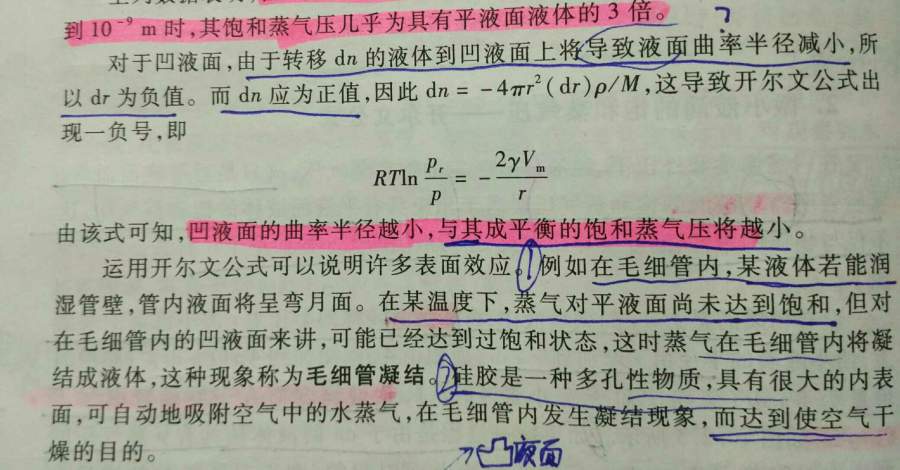 到 10⁻⁹ m 时,其饱和蒸气压几乎为具有平液面液体的 3 倍。
对于凹液面,由于转移 dn 的液体到凹液面上将导致液面曲率半径减小,所
以 dr 为负值。而 dn 应为正值,因此 dn = −4πr²(dr)ρ/M,这导致开尔文公式出
现一负号,即
RTln pᵣ/p = − 2γVₘ/r
由该式可知,凹液面的曲率半径越小,与其成平衡的饱和蒸气压将越小。
运用开尔文公式可以说明许多表面效应。①例如在毛细管内,某液体若能润
湿管壁,管内液面将呈弯月面。在某温度下,蒸气对平液面尚未达到饱和,但对
在毛细管内的凹液面来讲,可能已经达到过饱和状态,这时蒸气在毛细管内将凝
结成液体,这种现象称为毛细管凝结。②硅胶是一种多孔性物质,具有很大的内表
面,可自动地吸附空气中的水蒸气,在毛细管内发生凝结现象,而达到使空气干
燥的目的。
液面